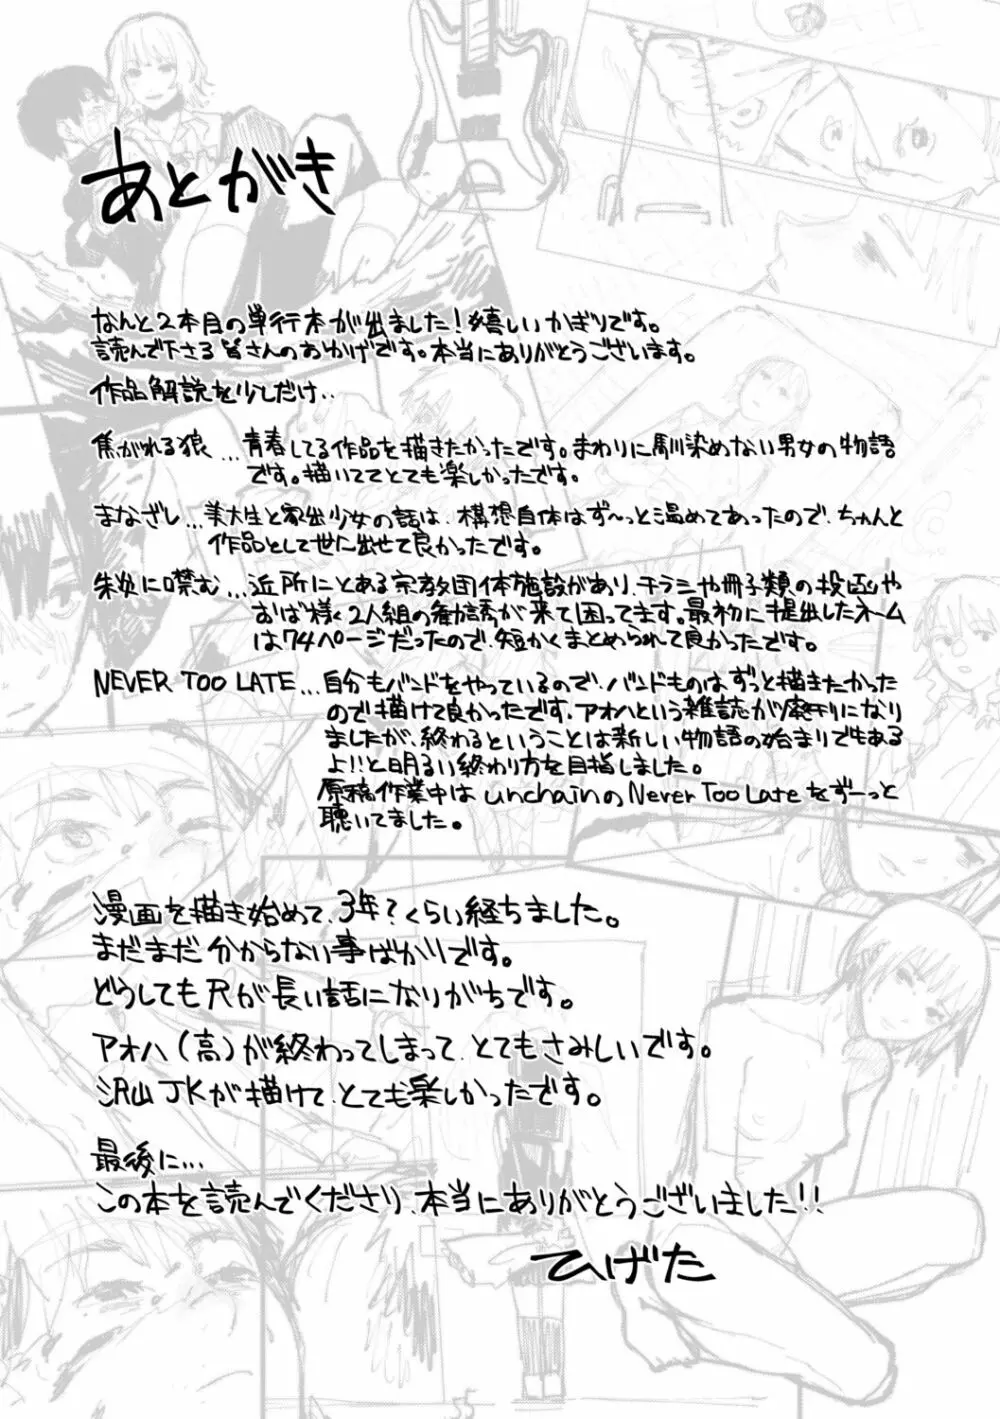 あとがき
なんと2本目の単行本が出ました！嬉しいかぎりです。
読んで下さる皆さんのおかげです。本当にありがとうございます。
作品解説を少しだけ..
焦がれる狼...青春してる作品を描きたかったです。まわりに馴染めない男女の物語
です。描いててとても楽しかったです。
まなざし...美大生と家出少女の話は、構想自体はず〜っと温めてあったので、ちゃんと
作品として世に出せて良かったです。
朱炎に噤む...近所にとある宗教団体施設があり、チラシや冊子類の投函や
おば様2人組の勧誘が来て困ってます。最初に提出したネーム
は74ページだったので、短かくまとめられて良かったです。
NEVER TOO LATE...自分もバンドをやっているので、バンドものはずっと描きたかった
ので描けて良かったです。アオハという雑誌が廃刊になり
ましたが、終わるということは新しい物語の始まりでもある
よ!!と明るい終わり方を目指しました。
原稿作業中はunchainのNever Too Lateをずーっと
聴いてました。
漫画を描き始めて、3年？くらい経ちました。
まだまだ分からない事ばかりです。
どうしても尺が長い話になりがちです。
アオハ（高）が終わってしまって、とてもさみしいです。
沢山JKが描けて、とても楽しかったです。
最後に...
この本を読んでくださり、本当にありがとうございました!!
ひげた